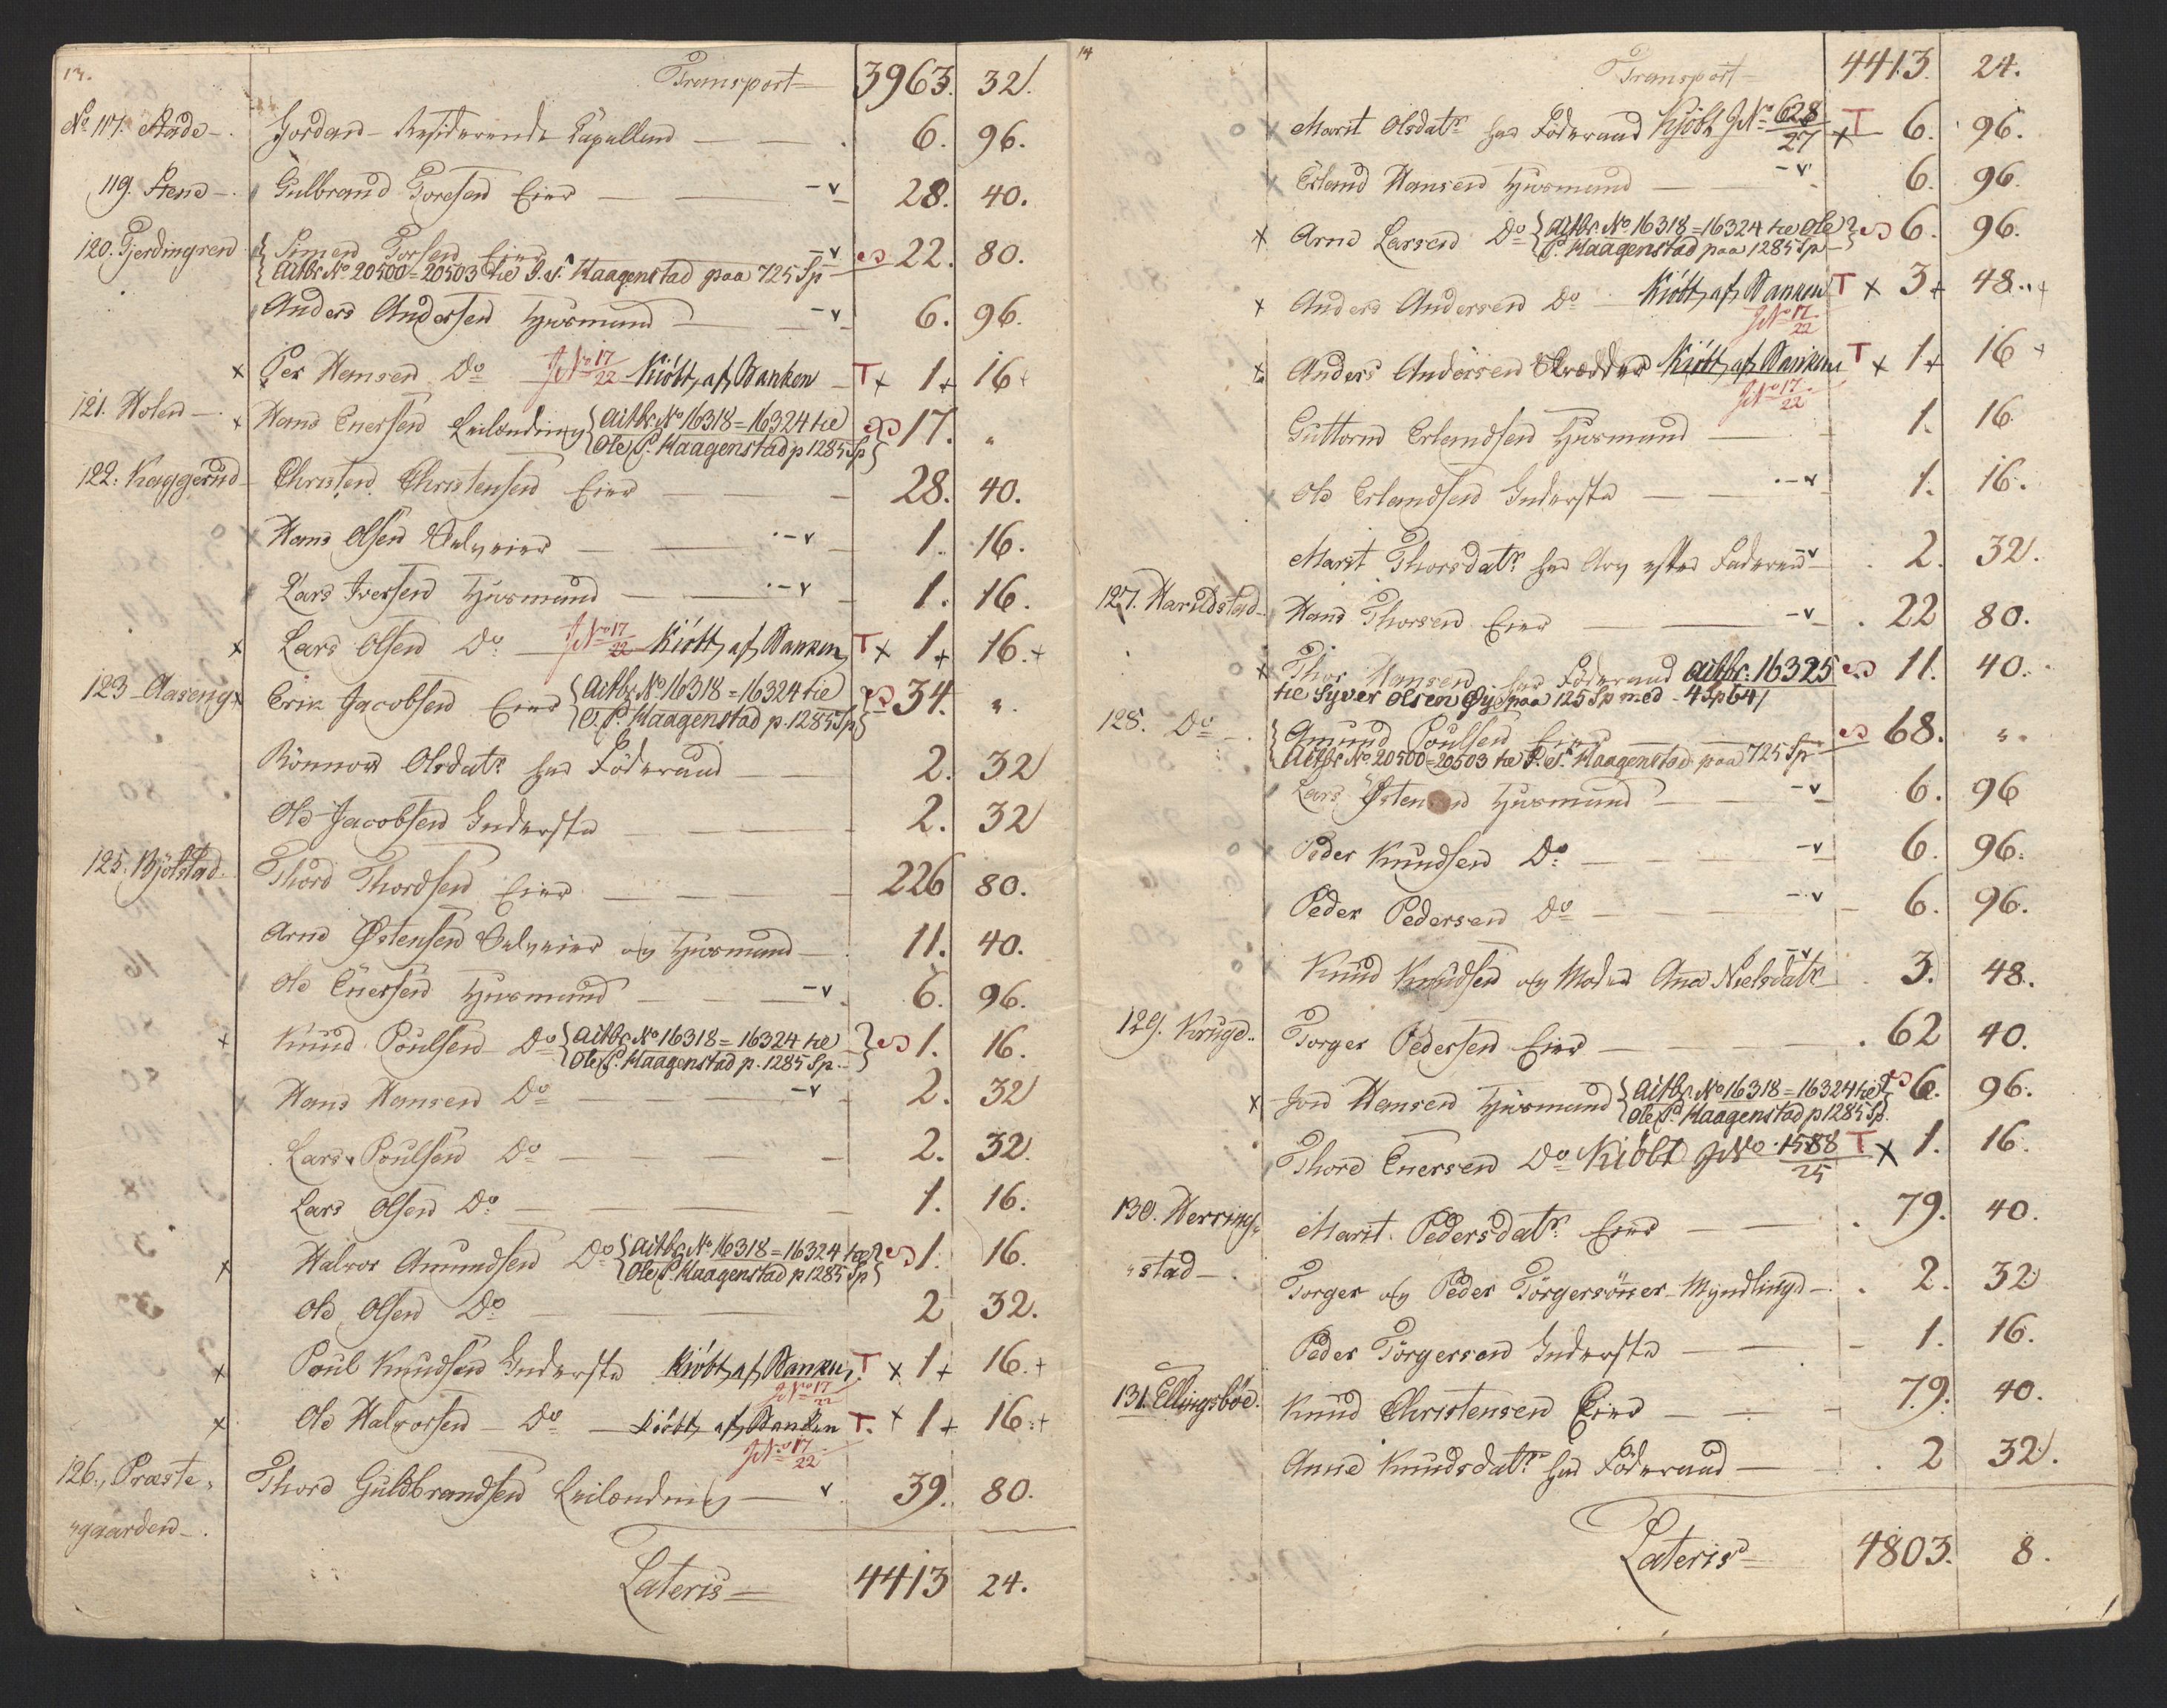 13.
Transport 3963. 32.
No 117. Stade - Jordan - Residerende Capelland 6. 96.
119. Stene - Gulbrand Toresen Eier - v 28. 40.
120. Tjerdingren Simen Torsen Eier - v 22. 80.
Actbr. No 20500 = 20503 til P. S. Haagenstad paa 725 Sp
Anders Andersen Huusmand - v 6. 96.
x Per Hansen Do JNo 17/22 Kiøbt af Banken T x 1 + 16 +
121. Holen x Hans Enersen Leilænding Actbr. No 16318 = 16324 til 17. "
Ole P. Haagenstad p 1285 Sp
122. Kaggerud Christen Christensen Eier 28. 40.
Hans Olsen Selveier - v 1. 16.
Lars Iversen Huusmand - v 1. 16.
x Lars Olsen Do JNo 17/22 Kiøbt af Banken T x 1 + 16. +
123 Aaseng x Erik Jacobsen Eier Actbr No 16318 = 16324 til 34. "
O. P. Haagenstad p. 1285 Sp
Rönnow Olsdatr har Föderaad 2. 32
Ole Jacobsen Inderste 2. 32
125. Bjölstad Thord Thordsen Eier 226 80.
Arne Østensen Selveier og Huusmand 11. 40.
Ole Enersen Huusmand - v 6. 96.
x Knud Poulsen Do Actbr No 16318 = 16324 til 1. 16.
Ole P. Haagenstad p. 1285 Sp.
Hans Hansen Do - v 2. 32
Lars Poulsen Do 2. 32.
Lars Olsen Do 1. 16.
x Halvor Amundsen Do Actbr No 16318 = 16324 til 1. 16.
Ole P. Haagenstad p 1285 Sp
Ole Olsen Do 2 32.
x Poul Knudsen Inderste Kiöbt af Banken T x 1 + 16. +
JNo 17/22
x Ole Halvorsen - Do - Kiöbt af Banken T. x 1 + 16. +
JNo 17/22
126. Præste- Thord Guldbrandsen Leilænding v 39. 80.
"gaarden
Lateris = 4413 24.
14
Transport 4413. 24.
Marit Olsdatr har Föderaad Kjöbt JNo 628/27 T x 6. 96.
Erland Hansen Huusmand - v 6. 96.
x Arne Larsen Do Actbr No 16318 = 16324 til Ole 6. 96.
P. Haagenstad paa 1285 Sp
x Anders Andersen Do Kiöbt af Banken T x 3 + 48. +
JNo 17/22
x Anders Andersen Skrædder Kiöbt af Banken T x 1 + 16 +
JNo 17/22
Guttorm Erlandsen Huusmand 1. 16.
Ole Erlandsen Inderste - v 1. 16.
Marit Thorsdatr har Arv efter Faderen v 2. 32.
127. Harildstad Hans Thorsen Eier - v 22 80.
x Thor Hansen har Föderaad Actbr. 16325 11. 40.
til Syver Olsen Øye paa 125 Sp med - 4 Sp 64 /
128. Do Amund Poulsen Eier 68. "
Actbr No 20500 = 20503 til P. S. Haagenstad paa 725 Sp
Lars Østensen Huusmand - v 6. 96
Peder Knudsen Do - v 6. 96.
Peder Pedersen Do - v 6. 96.
Knud Knudsen og Moder Ane Nielsdatr v 3. 48.
129. Kruge Torger Pedersen Eier 62 40.
x Jon Hansen Huusmand Actbr. No 16318 = 16324 til 6. 96.
Ole P. Haagenstad p 1285 Sp.
Thore Enersen Do Kiöbt JNo 1588/25 T x 1. 16.
130. Herring- Marit Pedersdatr Eier 79. 40.
"stad - Torger og Peder Törgersönner Myndlinge 2. 32
Peder Törgersen Inderste 1. 16.
131. Ellingsböe. Knud Christensen Eier 79. 40.
Anne Knudsdatr har Föderaad 2 32.
Lateris = 4803. 8.